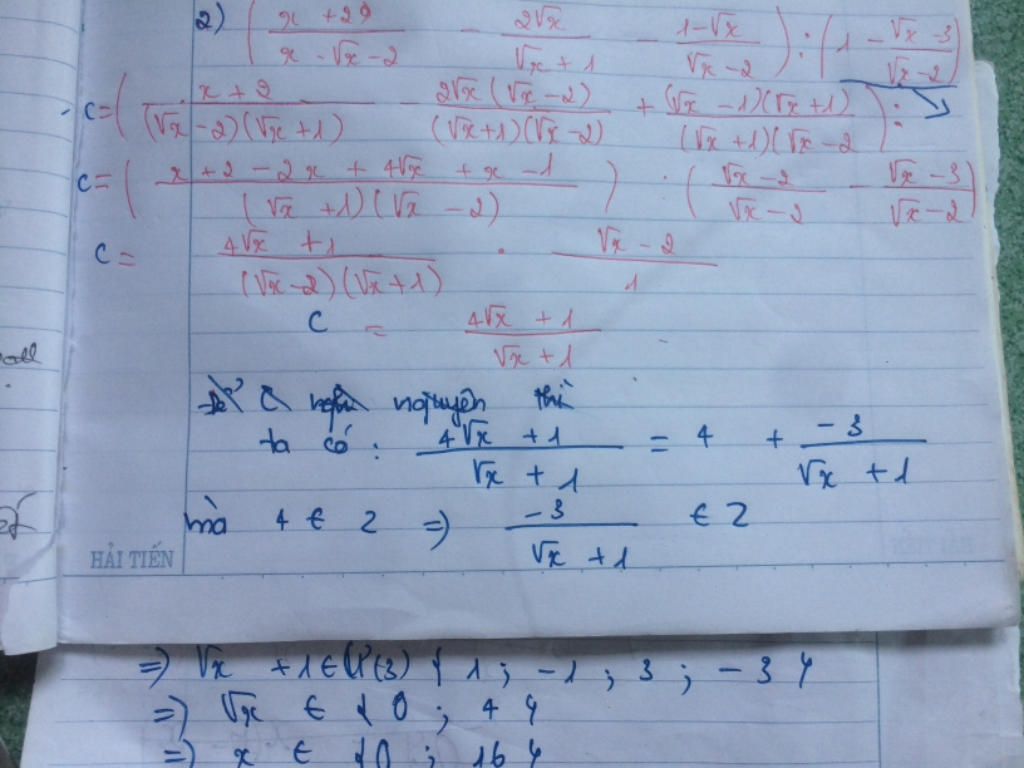 2) ( x + 2 / x - √x - 2 - 2√x / √x + 1 - 1 - √x / √x - 2 ) : ( 1 - √x - 3 / √x - 2 )
C = ( x + 2 / (√x - 2)(√x + 1) - 2√x (√x - 2) / (√x + 1)(√x - 2) + (√x - 1)(√x + 1) / (√x + 1)(√x - 2 ) :
C = ( x + 2 - 2x + 4√x + x - 1 / (√x + 1)(√x - 2) ) : ( √x - 2 / √x - 2 - √x - 3 / √x - 2 )
C = 4√x + 1 / (√x - 2)(√x + 1) . √x - 2 / 1
C = 4√x + 1 / √x + 1
để C nguyên thì
ta có : 4√x + 1 / √x + 1 = 4 + -3 / √x + 1
mà 4 ∈ Z => -3 / √x + 1 ∈ Z
HẢI TIẾN
=> √x + 1 ∈ Ư(3) { 1 ; -1 ; 3 ; -3 }
=> √x ∈ { 0 ; 4 }
=> x ∈ { 0 ; 16 }